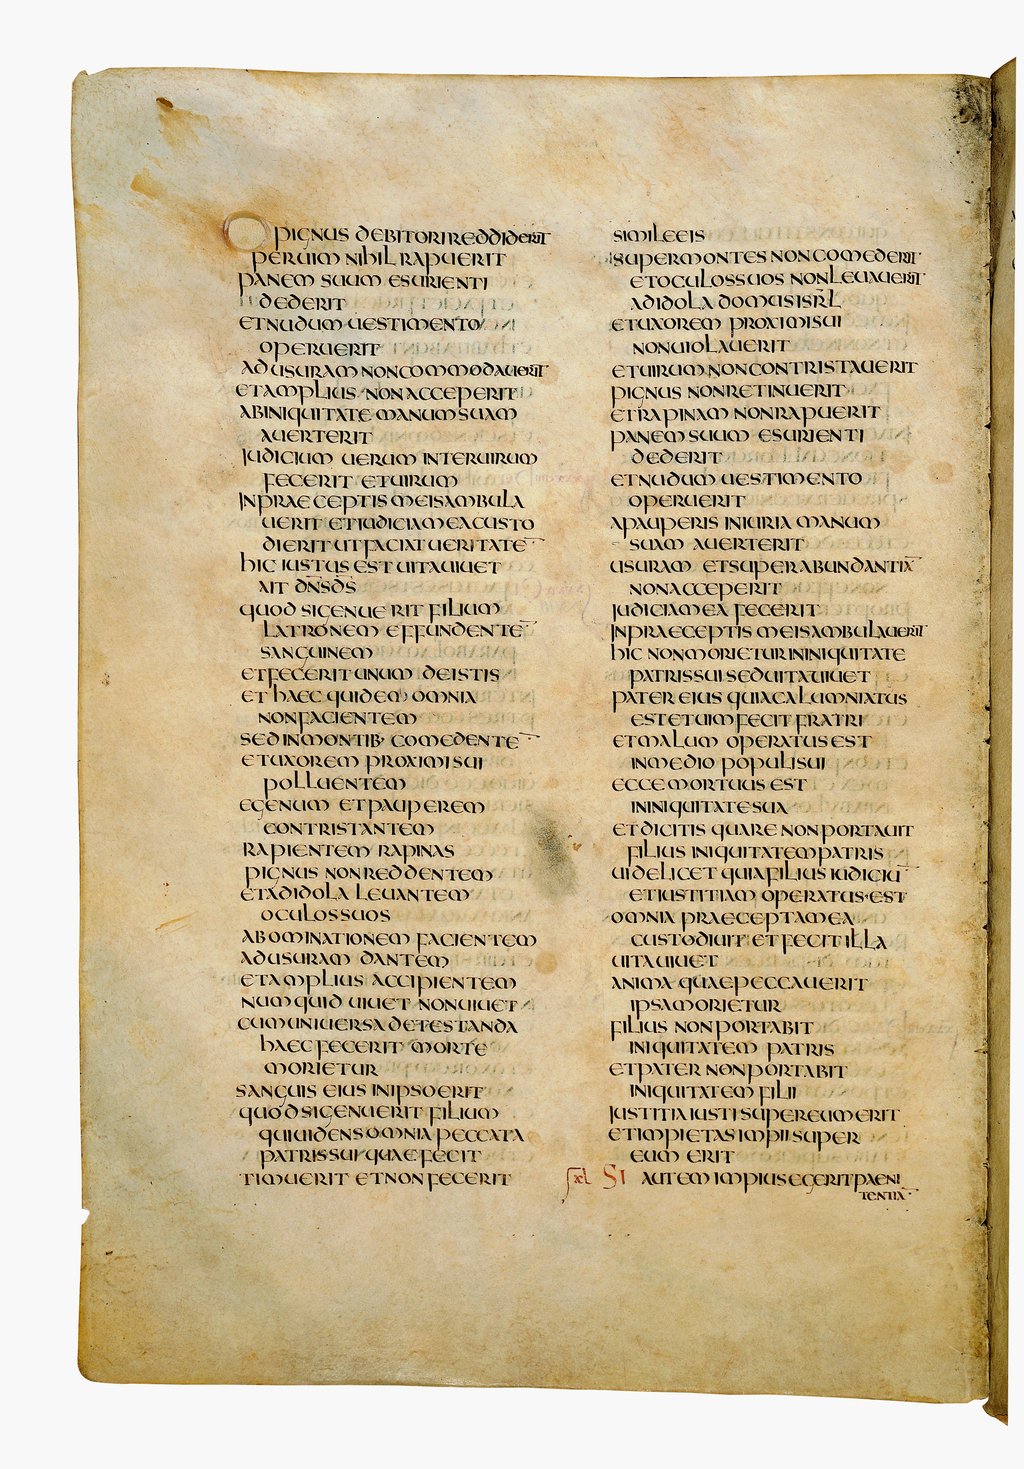 PIGNUS DEBITORI REDDIDERIT
PER UIM NIHIL RAPUERIT
PANEM SUUM ESURIENTI
DEDERIT
ET NUDUM UESTIMENTO
OPERUERIT
AD USURAM NON COMMODAUERIT
ET AMPLIUS NON ACCEPERIT
AB INIQUITATE MANUM SUAM
AUERTERIT
IUDICIUM UERUM INTER UIRUM
FECERIT ET UIRUM
IN PRAECEPTIS MEIS AMBULA
UERIT ET IUDICIA MEA CUSTO
DIERIT UT FACIAT UERITATE¯
HIC IUSTUS EST UITA UIUET
AIT DN̄S D̄S
QUOD SI GENUERIT FILIUM
LATRONEM EFFUNDENTE¯
SANGUINEM
ET FECERIT UNUM DE ISTIS
ET HAEC QUIDEM OMNIA
NON FACIENTEM
SED IN MONTIB· COMEDENTE¯
ET UXOREM PROXIMI SUI
POLLUENTEM
EGENUM ET PAUPEREM
CONTRISTANTEM
RAPIENTEM RAPINAS
PIGNUS NON REDDENTEM
ET AD IDOLA LEUANTEM
OCULOS SUOS
ABOMINATIONEM FACIENTEM
AD USURAM DANTEM
ET AMPLIUS ACCIPIENTEM
NUMQUID UIUET NON UIUET
CUM UNIUERSA DETESTANDA
HAEC FECERIT MORTE
MORIETUR
SANGUIS EIUS IN IPSO ERIT
QUOD SI GENUERIT FILIUM
QUI UIDENS OMNIA PECCATA
PATRIS SUI QUAE FECIT
TIMUERIT ET NON FECERIT
SIMILE EIS
SUPER MONTES NON COMEDERIT
ET OCULOS SUOS NON LEUAUERIT
AD IDOLA DOMUS ISR̄L
ET UXOREM PROXIMI SUI
NON UIOLAUERIT
ET UIRUM NON CONTRISTAUERIT
PIGNUS NON RETINUERIT
ET RAPINAM NON RAPUERIT
PANEM SUUM ESURIENTI
DEDERIT
ET NUDUM UESTIMENTO
OPERUERIT
A PAUPERIS INIURIA MANUM
SUAM AUERTERIT
USURAM ET SUPERABUNDANTIA¯
NON ACCEPERIT
IUDICIA MEA FECERIT
IN PRAECEPTIS MEIS AMBULAUERIT
HIC NON MORIETUR IN INIQUITATE
PATRIS SUI SED UITA UIUET
PATER EIUS QUIA CALUMNIATUS
EST ET UIM FECIT FRATRI
ET MALUM OPERATUS EST
IN MEDIO POPULI SUI
ECCE MORTUUS EST
IN INIQUITATE SUA
ET DICITIS QUARE NON PORTAUIT
FILIUS INIQUITATEM PATRIS
UIDELICET QUIA FILIUS IUDICIU¯
ET IUSTITIAM OPERATUS EST
OMNIA PRAECEPTA MEA
CUSTODIUIT ET FECIT ILLA
UITA UIUET
ANIMA QUAE PECCAUERIT
IPSA MORIETUR
FILIUS NON PORTABIT
INIQUITATEM PATRIS
ET PATER NON PORTABIT
INIQUITATEM FILII
IUSTITIA IUSTI SUPER EUM ERIT
ET IMPIETAS IMPII SUPER
EUM ERIT
SI AUTEM IMPIUS EGERIT PAENI
TENTIA¯